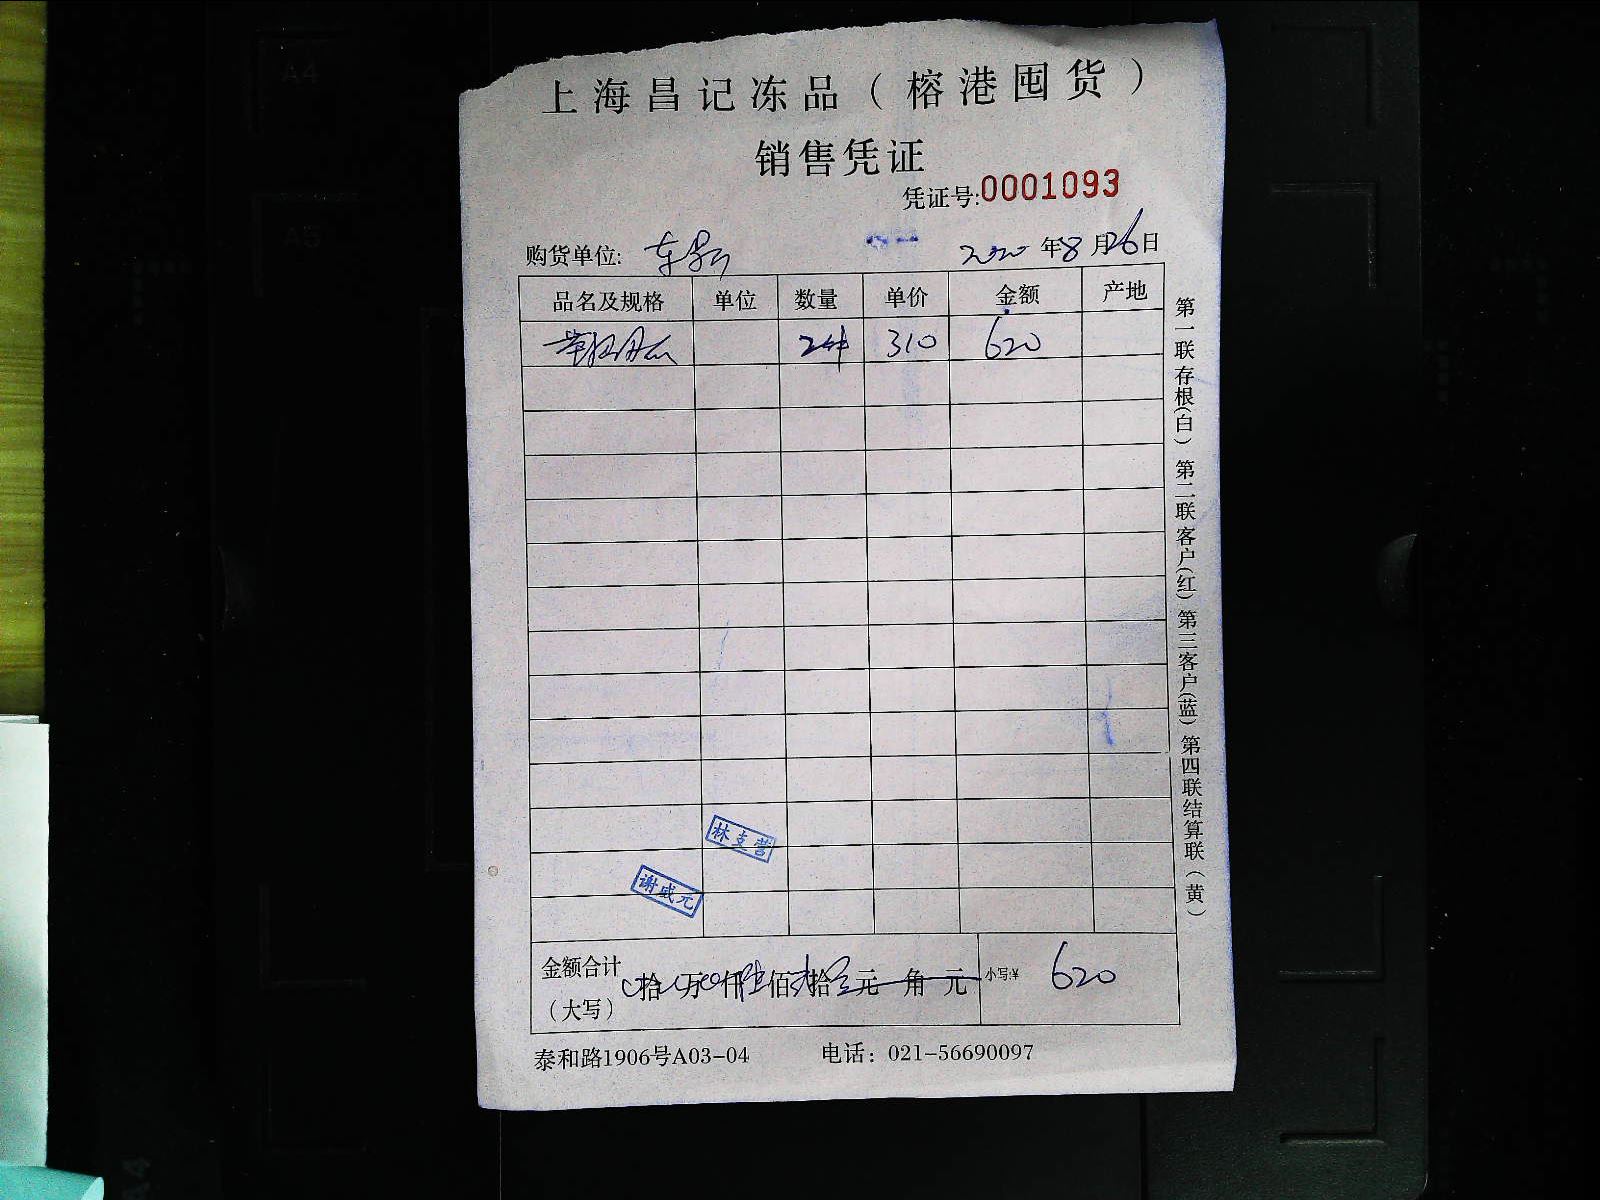 上海昌记冻品（榕港囤货）
销售凭证
凭证号:0001093
购货单位: 2020年8月26日
品名及规格 单位 数量 单价 金额 产地
2件 310 620
林支营
谢威元
金额合计（大写） 拾 万 仟陆佰贰拾元 角 元 小写:¥ 620
泰和路1906号A03-04 电话：021-56690097
第一联存根(白) 第二联客户(红) 第三客户(蓝) 第四联结算联(黄)
A4
A5